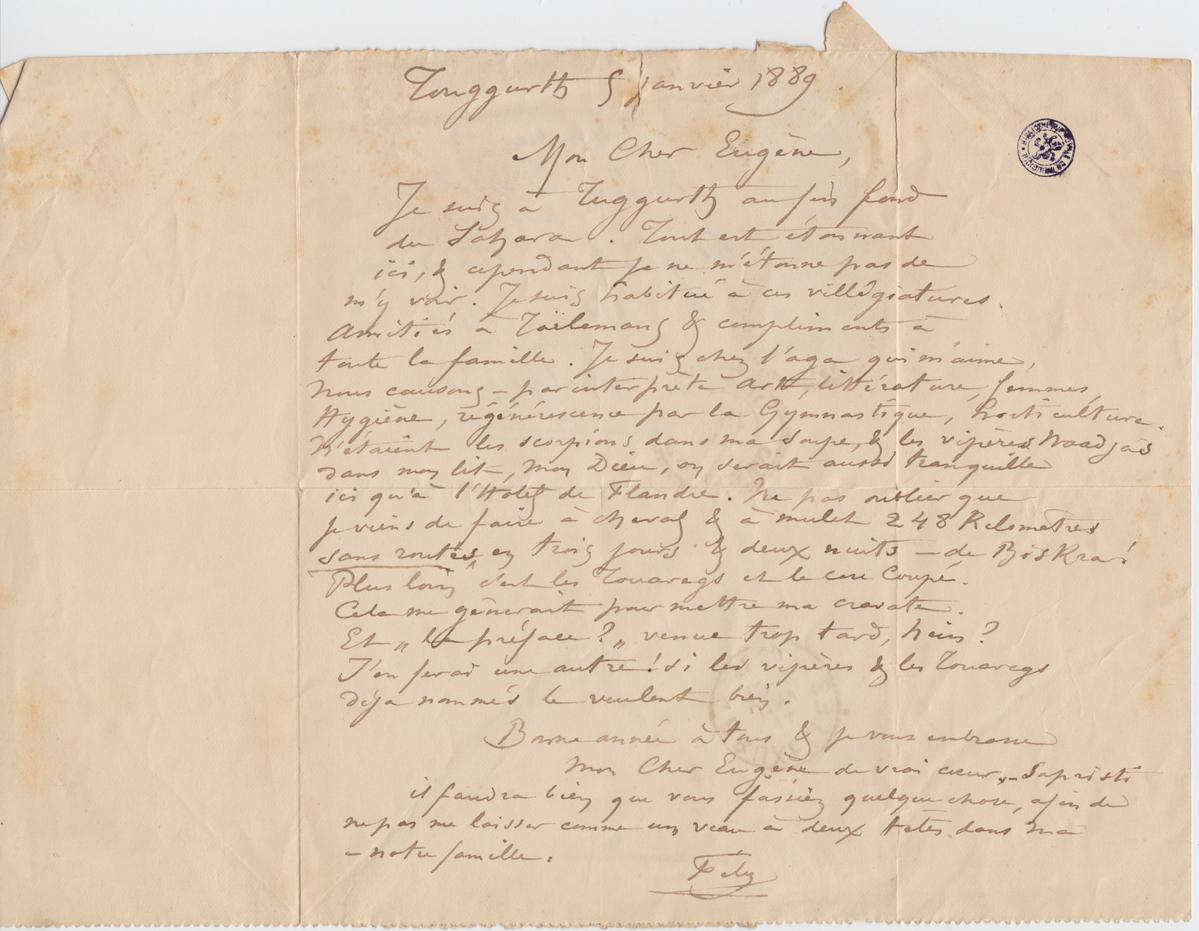 Touggurth 5 janvier 1889.
Mon Cher Eugène,
Je suis à Tuggurth au fin fond
du Sahara. Tout est étonnant
ici, & cependant je ne m'étonne pas de
m'y voir. Je suis habitué à ces villégiatures.
Amitiés à & compliments à
toute la famille. Je suis chez l'aga qui m'aime,
nous causons – par interprète art, littérature, femmes,
Hygiène, régénérescence par la Gymnastique, horticulture.
N'étaient les scorpions dans ma soupe, & les vipères
dans mon lit, Mon Dieu, on serait aussi tranquille
ici qu'à l'Hôtel de Flandre. Ne pas oublier que
je viens de faire à cheval & à mulet 248 Kilomètres
sans routes en trois jours & deux nuits – de Biskra!
Plus loin c'est les Touaregs et le cou Coupé.
Cela me gênerait pour mettre ma cravate.
Et „ la préface? „ venue trop tard, hein?
J'en ferai une autre! si les vipères & les Touaregs
déja nommés le veulent bien.
Bonne année à tous & je vous embrasse
Mon Cher Eugène de vrai cœur, – Sapristi
il faudra bien que vous fassiez quelque chose, afin de
ne pas me laisser comme un veau à deux têtes dans ma
– notre famille.
Fély